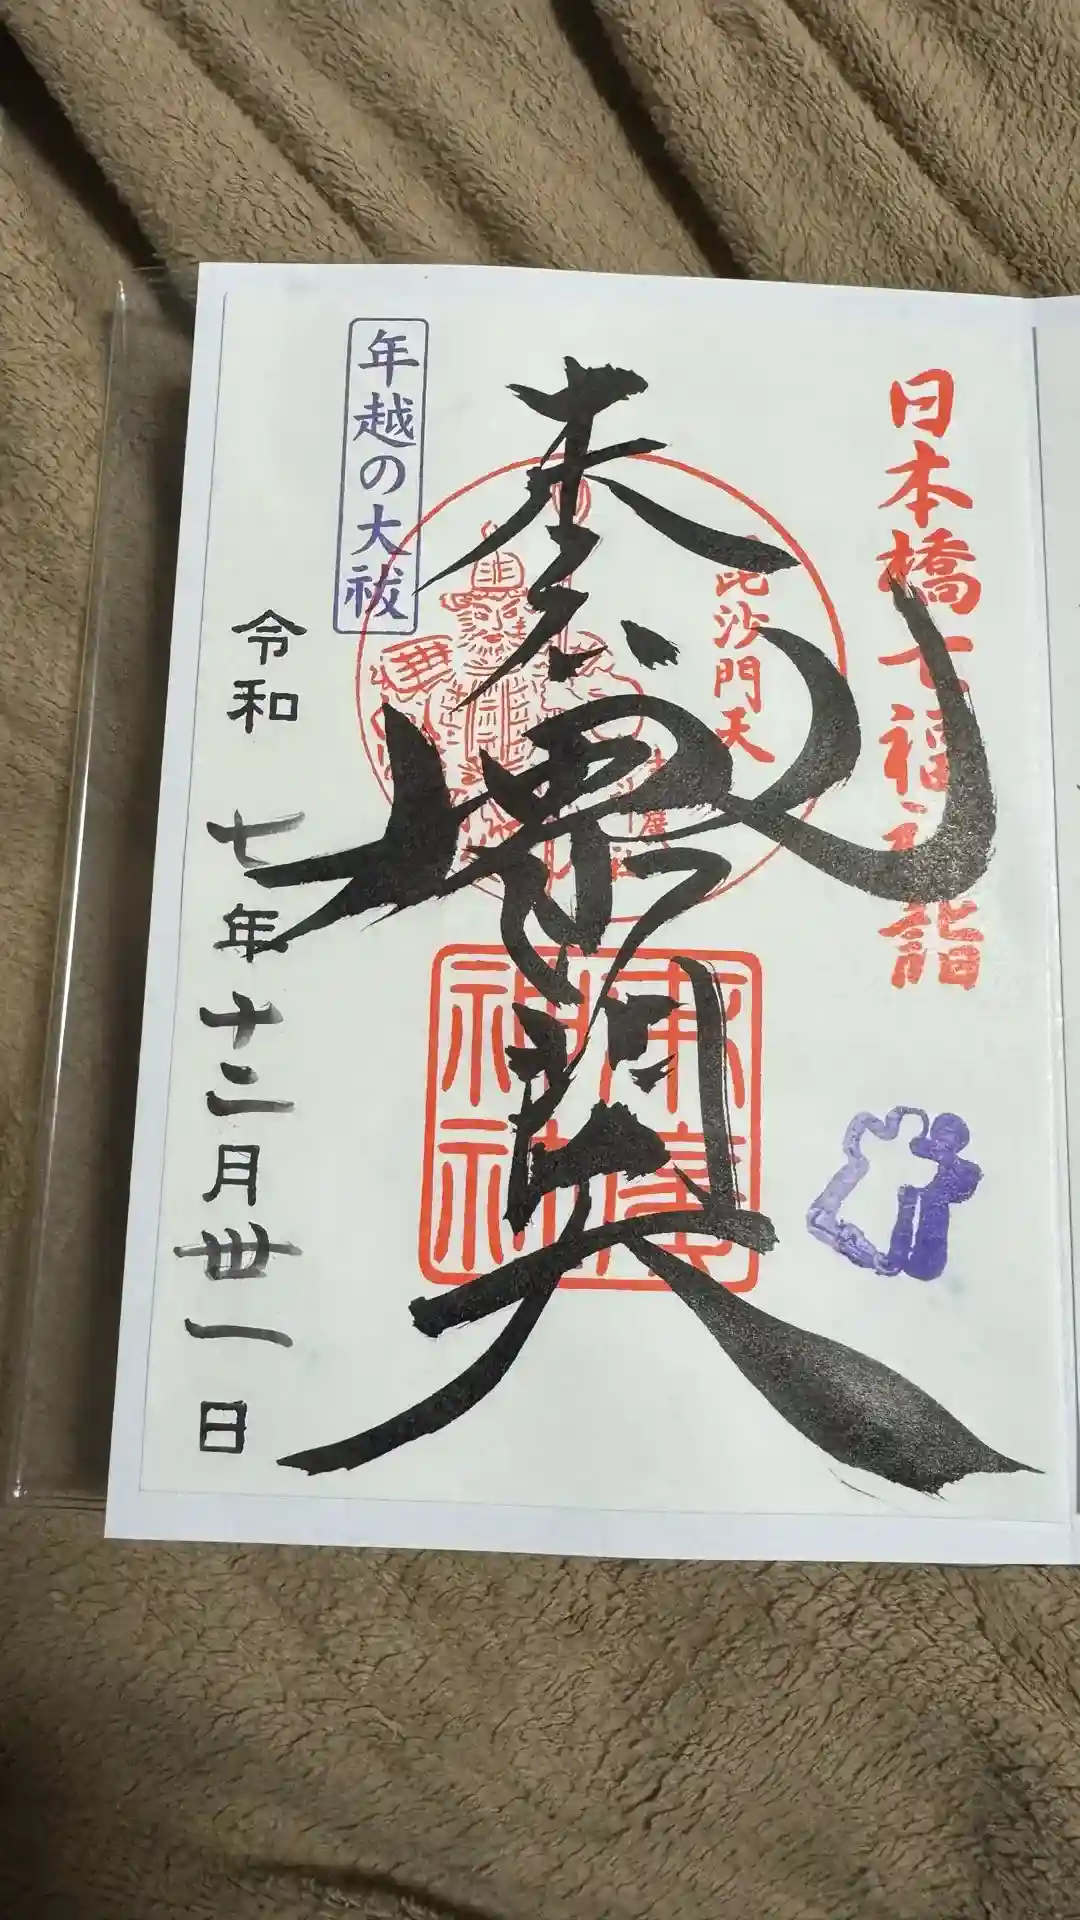 日本橋七福神詣
毘沙門天
末廣神社
末廣神社
年越の大祓
令和七年十二月丗一日